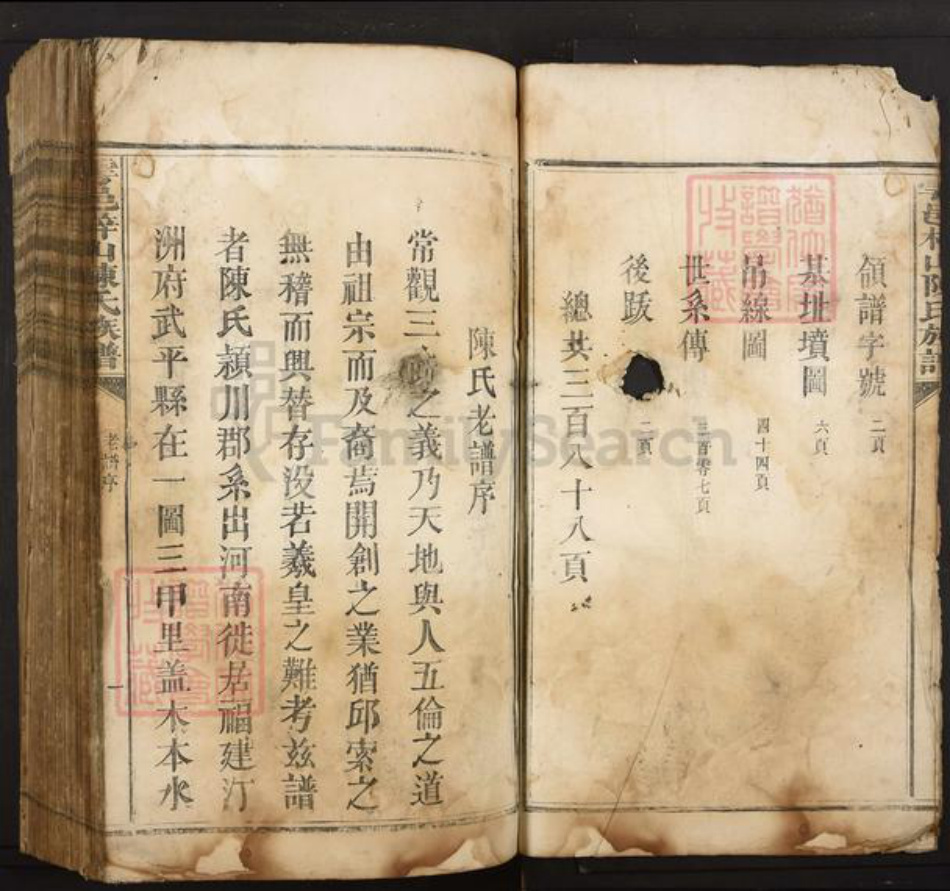 領譜字號 二頁
基址墳圖 六頁
吊線圖 四十四頁
世系傳 三百零七頁
後跋 二頁
總共三百八十八頁
陳氏老譜序
常觀三 之義乃天地與人五倫之道
由祖宗而及裔焉開創之業猶邱索之
無稽而興替存没若羲皇之難考玆譜
者陳氏潁川郡系出河南徙居福建汀
洲府武平縣在一圖三甲里盖木本水
梓山陳氏族譜
老譜序
一
FamilySearch